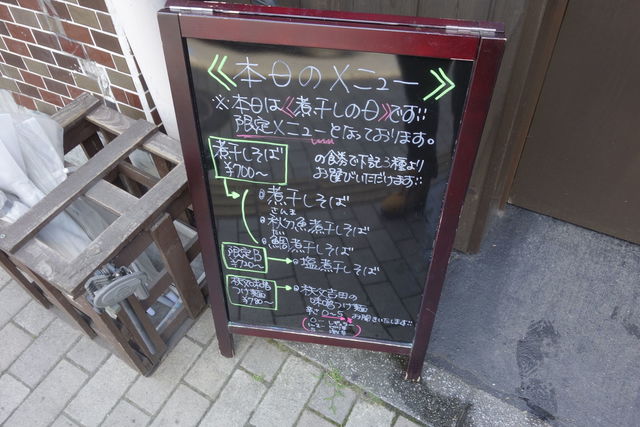 ≪本日のメニュー≫
※本日は≪煮干しの日≫です!!
限定メニューとなっております。
煮干しそば
¥700〜
の食券で下記3種より
お選びいただけます!!
煮干しそば
さんま
秋刀魚煮干しそば
たい
鯛煮干しそば
限定B
¥720〜
塩煮干しそば
つけ麺
¥780〜
秩父吉田の
味噌つけ麺
辛さ 0〜5 お聞きいたします!!